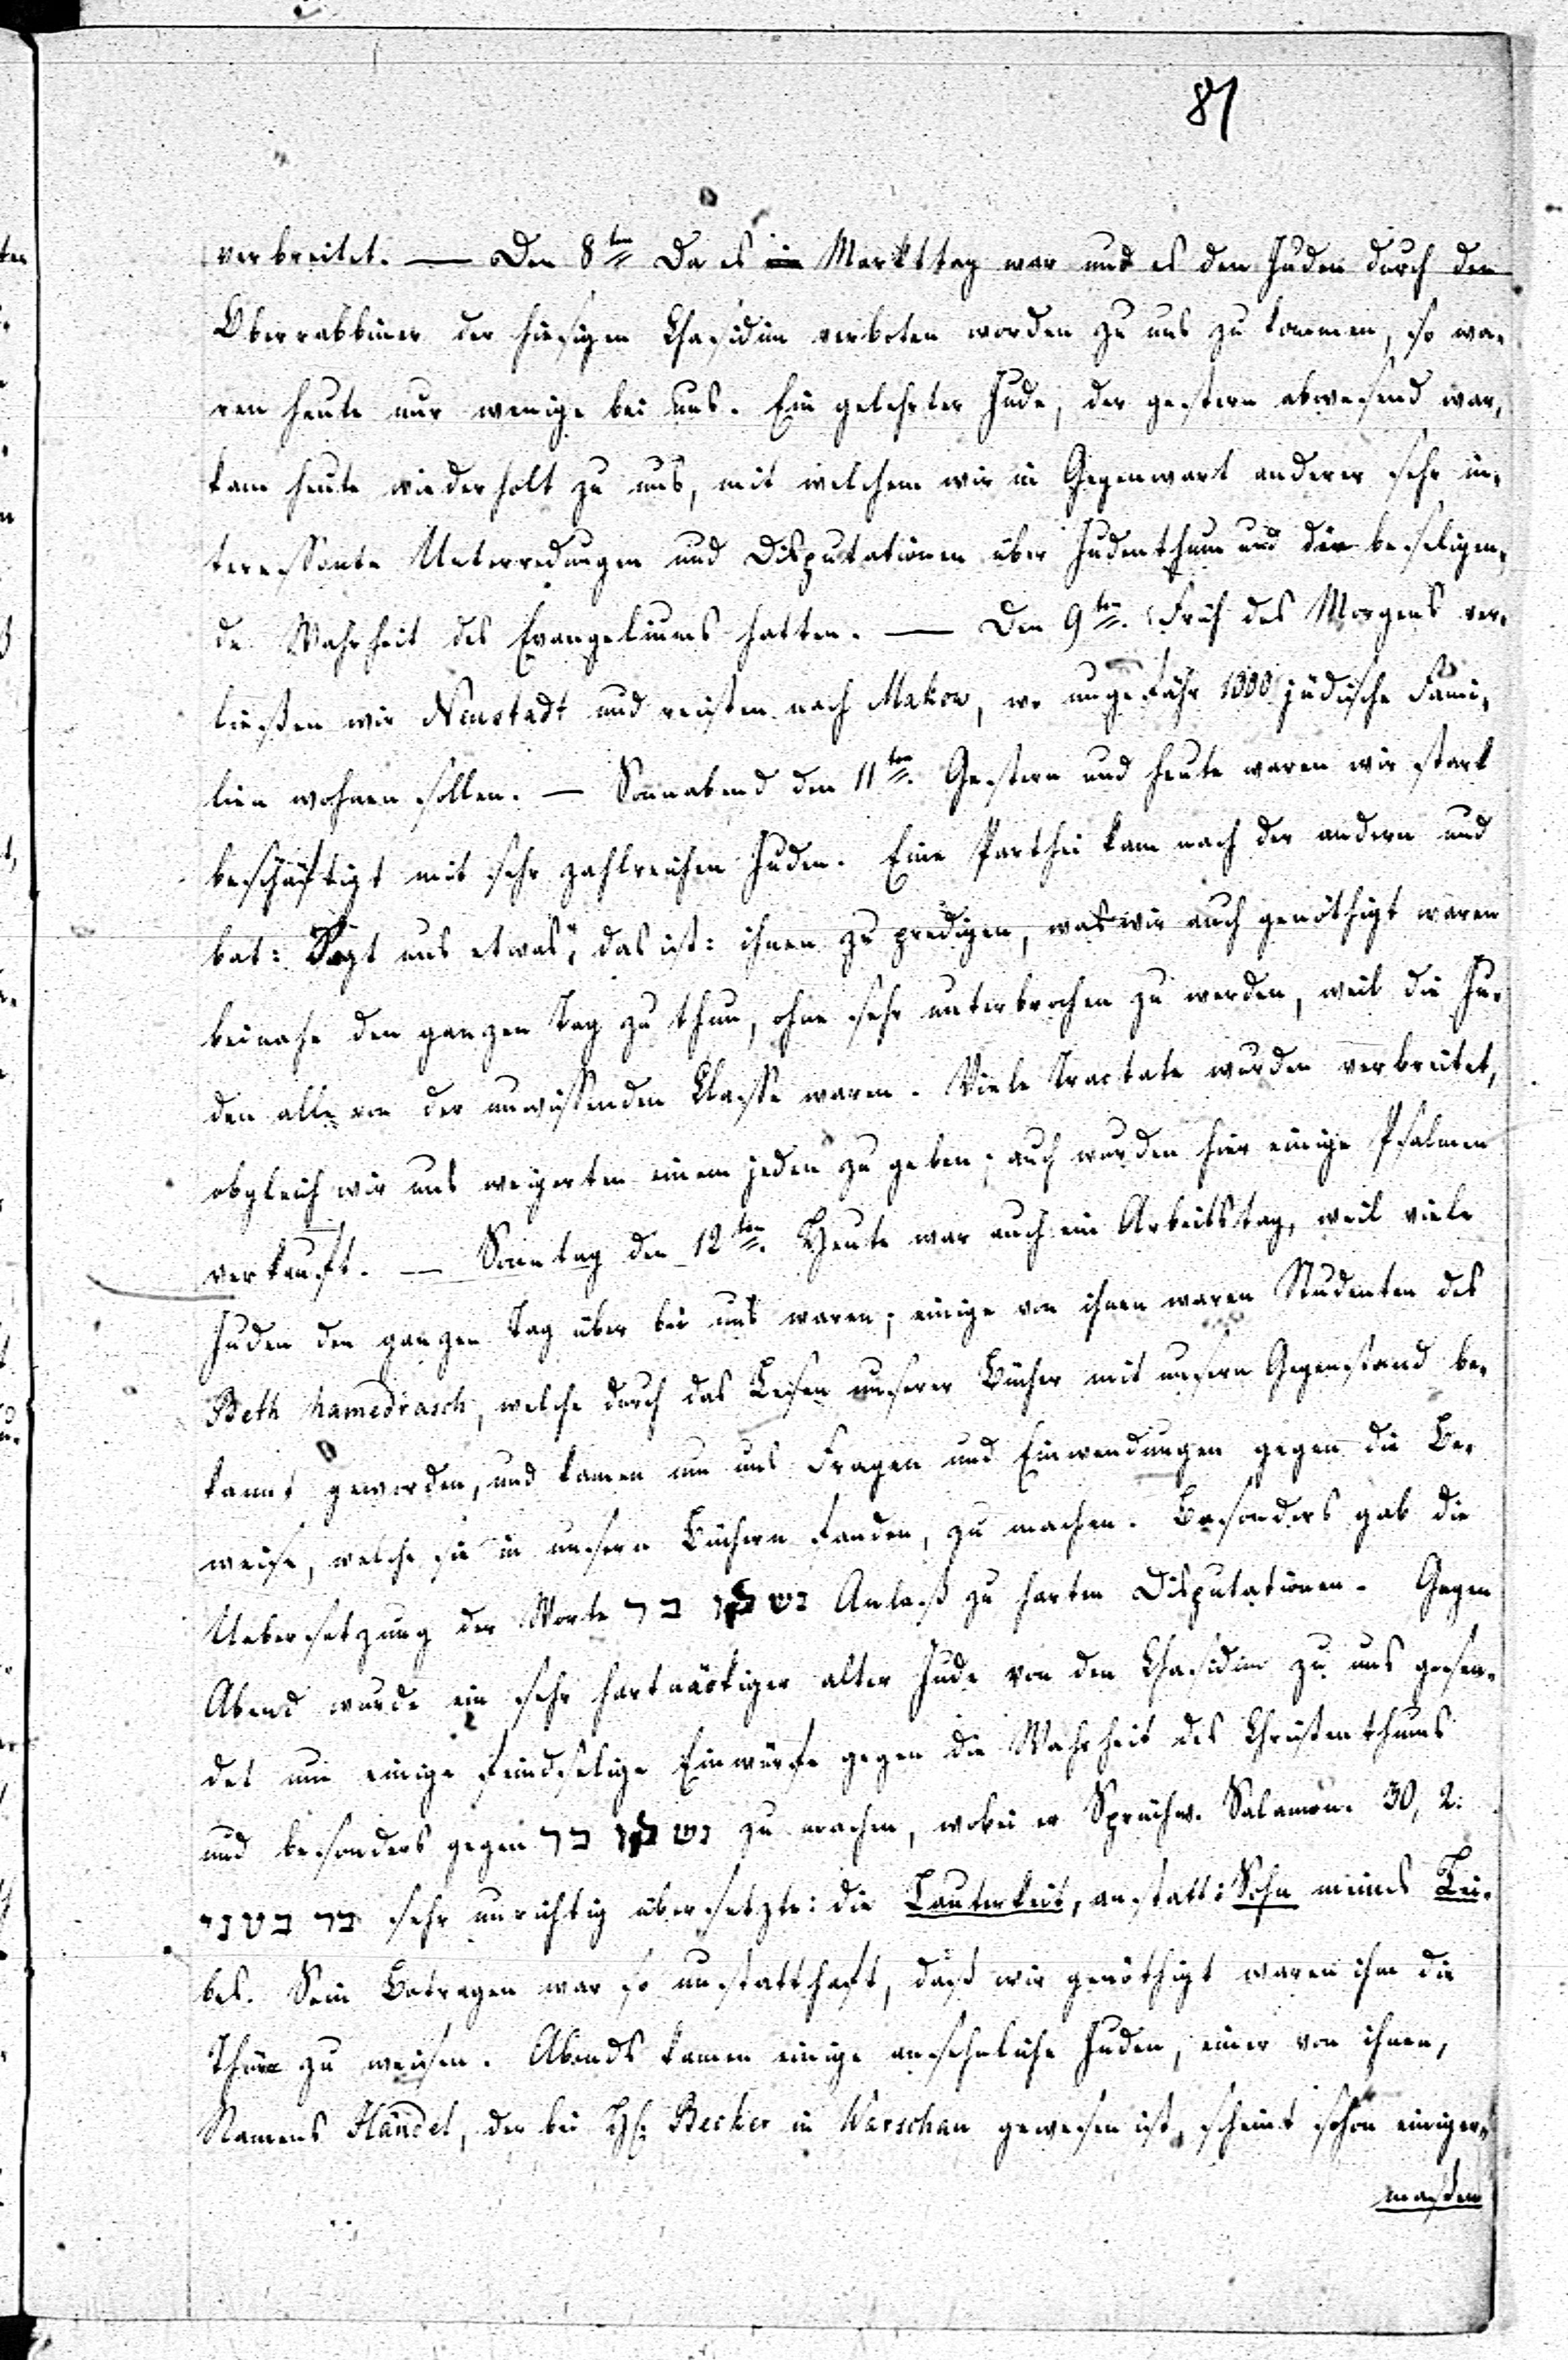 81
verbreitet. — Den 8ten Da es ein Markttag war und es den Juden durch den
Oberrabbiner der hiesigen Chasidim verboten worden zu uns zu kommen, so wa-
ren heute nur wenige bei uns. Ein gelehrter Jude, der gestern abwesend war,
kam heute wiederholt zu uns, mit welchem wir in Gegenwart anderer sehr in-
teressante Unterredungen und Disputationen über Judenthum und die beseligen-
de Wahrheit des Evangeliums hatten. — Den 9ten. Früh des Morgens ver-
ließen wir Neustadt und reisten nach Makow, wo ungefähr 1000 jüdische Fami-
lien wohnen sollen. — Sonnabend den 11ten. Gestern und heute waren wir stark
beschäftigt mit sehr zahlreichen Juden. Eine Parthei kam nach der andern und
bat: Sagt uns etwas", das ist: ihnen zu predigen, was wir auch genöthigt waren
beinahe den ganzen Tag zu thun, ohne sehr unterbrochen zu werden, weil die Ju-
den alle von der unwissenden Classe waren. Viele Tractate wurden verbreitet,
obgleich wir uns weigerten einem jeden zu geben; auch wurden hier einige Psalmen
verkauft. — Sonntag den 12ten. Heute war auch ein Arbeitstag, weil viele
Juden den ganzen Tag über bei uns waren; einige von ihnen waren Studenten des
Beth hamedrasch, welche durch das Lesen unserer Bücher mit unserm Gegenstand be-
kannt geworden, und kamen um uns Fragen und Einwendungen gegen die Be-
weise, welche sie in unsern Büchern fanden, zu machen. Besonders gab die
Uebersetzung der Worte נשקו בר Anlaß zu harten Disputationen. Gegen
Abend wurde ein sehr hartnäckiger alter Jude von den Chasidim zu uns gesen-
det um einige feindselige Einwürfe gegen die Wahrheit des Christenthums
und besonders gegen נשקו בר zu machen, wobei er Sprüchw. Salamon. 30, 2:
בר בטני sehr unrichtig übersetzte: die Lauterkeit, anstatt: Sohn meines Lei-
bes. Sein Betragen war so unstatthaft, daß wir genöthigt waren ihm die
Thüre zu weisen. Abends kamen einige ansehnliche Juden, einer von ihnen,
Namens Händel, der bei H. Becker in Warschau gewesen ist, scheint schon einiger-
maßen